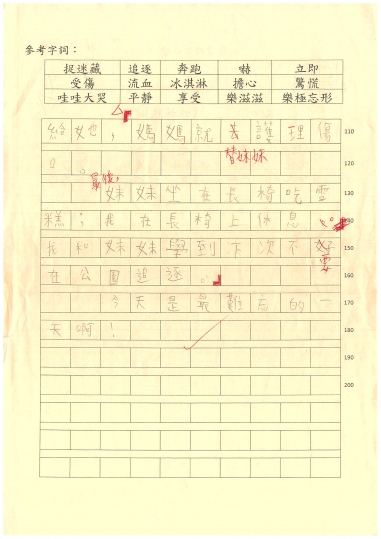 參考字詞：
捉迷藏 追逐 奔跑 嚇 立即
受傷 流血 冰淇淋 擔心 驚慌
哇哇大哭 平靜 享受 樂滋滋 樂極忘形
給她，媽媽就去護理傷 210
替妹妹
口。 120
最後，
妹妹坐在長椅吃雪 130
糕；我在長椅上休息。 140
我和妹妹學到下次不好 150
要
在公園追逐。 160
今天是最難忘的一 170
天啊！ 180
190
200